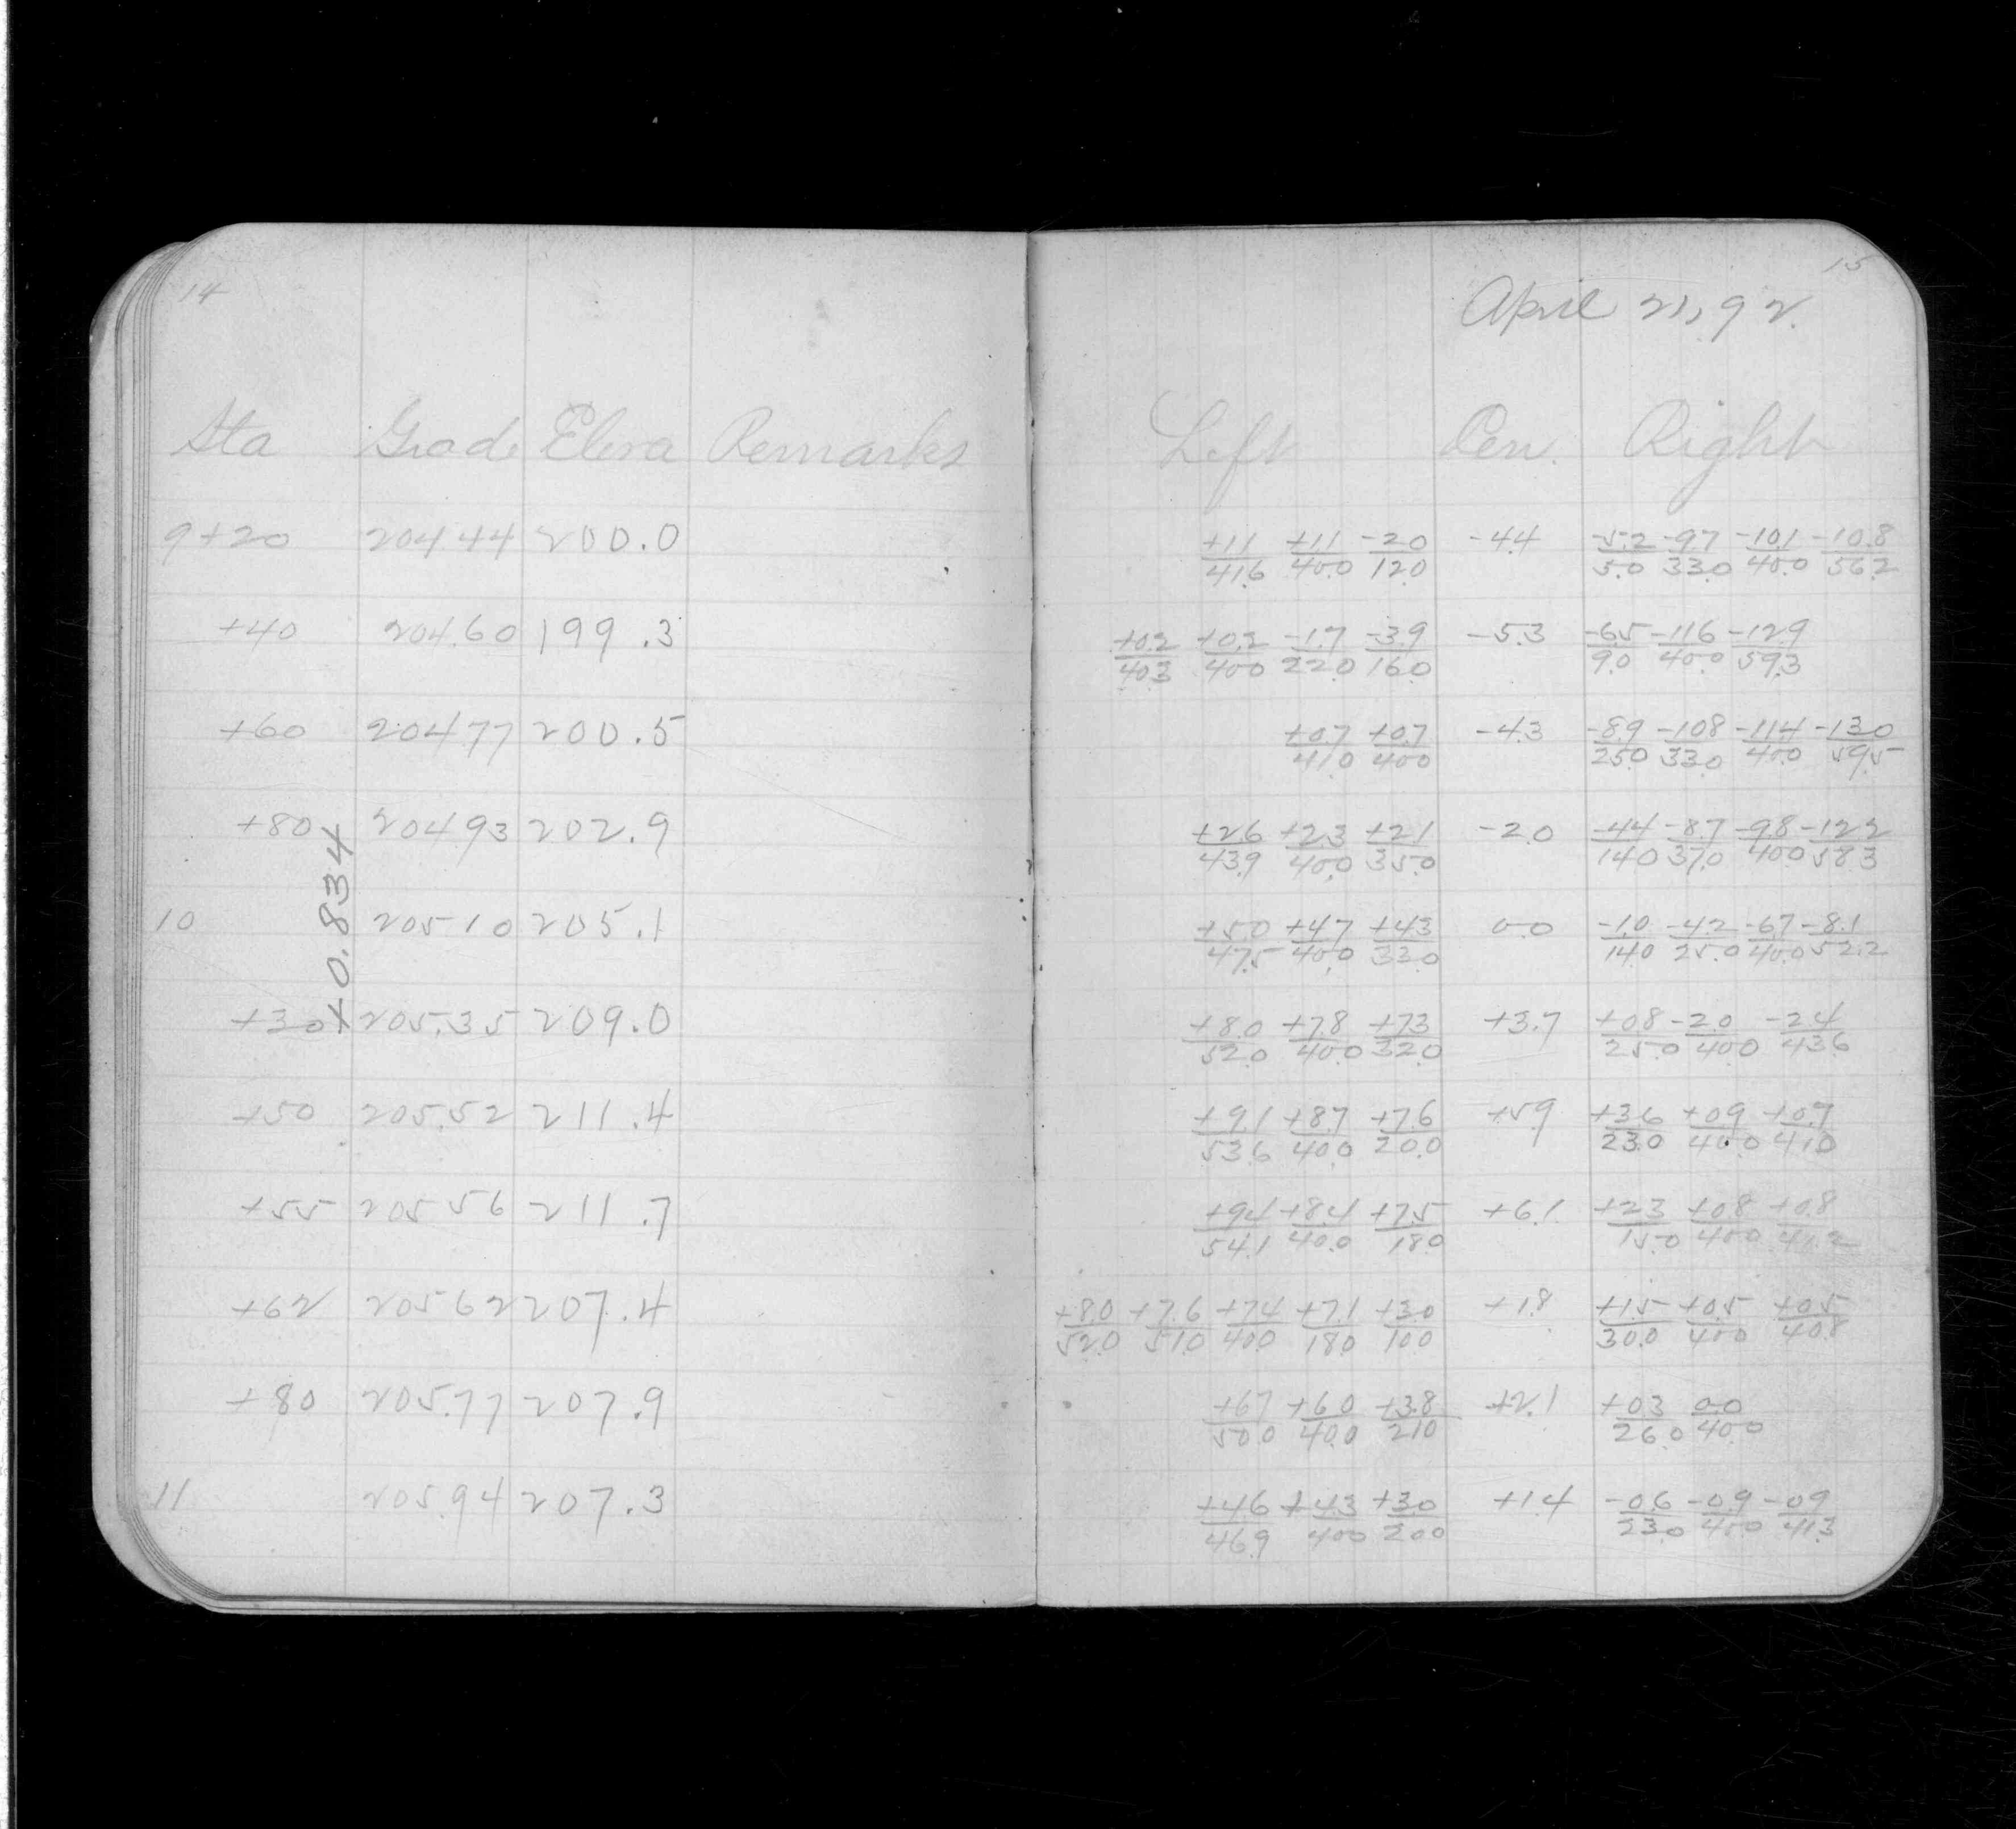 14
Sta Grade Eleva Remarks
9+20 204.44 200.0
+40 204.60 199.3
+60 204.77 200.5
+80 204.93 202.9
10 205.10 205.1
+0.834
+30 205.35 209.0
+50 205.52 211.4
+55 205.56 211.7
+62 205.62 207.4
+80 205.77 207.9
11 205.94 207.3
15
April 21, 92.
Left Cen. Right
+1.1/41.6 +1.1/40.0 -2.0/12.0 -4.4 -5.2/5.0 -9.7/33.0 -10.1/40.0 -10.8/56.2
+0.2/40.3 +0.2/40.0 -1.7/22.0 -3.9/16.0 -5.3 -6.5/9.0 -11.6/40.0 -12.9/59.3
+0.7/41.0 +0.7/40.0 -4.3 -8.9/25.0 -10.8/33.0 -11.4/40.0 -13.0/59.5
+2.6/43.9 +2.3/40.0 +2.1/35.0 -2.0 -4.4/14.0 -8.7/37.0 -9.8/40.0 -12.2/58.3
+5.0/47.5 +4.7/40.0 +4.3/33.0 0.0 -1.0/14.0 -4.2/25.0 -6.7/40.0 -8.1/52.2
+8.0/52.0 +7.8/40.0 +7.3/32.0 +3.7 +0.8/25.0 -2.0/40.0 -2.4/43.6
+9.1/53.6 +8.7/40.0 +7.6/20.0 +5.9 +3.6/23.0 +0.9/40.0 +0.7/41.0
+9.4/54.1 +8.4/40.0 +7.5/18.0 +6.1 +2.3/15.0 +0.8/40.0 +0.8/41.2
+8.0/52.0 +7.6/51.0 +7.4/40.0 +7.1/18.0 +3.0/10.0 +1.8 +1.5/30.0 +0.5/40.0 +0.5/40.8
+6.7/50.0 +6.0/40.0 +3.8/21.0 +2.1 +0.3/26.0 0.0/40.0
+4.6/46.9 +4.3/40.0 +3.0/20.0 +1.4 -0.6/23.0 -0.9/40.0 -0.9/41.3